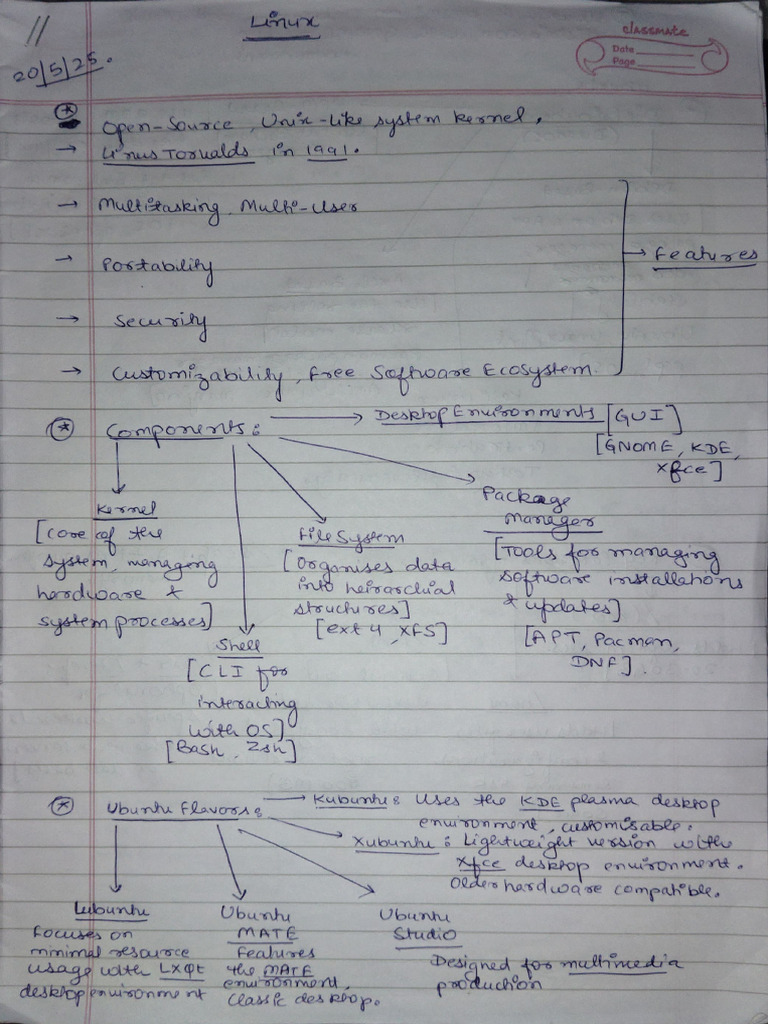 Linux
11
20/5/25.
classmate
Date
Page
* Open-Source, Unix-Like system kernel.
→ Linus Torvalds in 1991.
→ Multitasking, Multi-User
→ Portability
→ Features
→ Security
→ Customizability, Free Software Ecosystem.
* Components: → Desktop Environments [GUI]
[GNOME, KDE,
Xfce]
Kernel
[core of the
system, managing
hardware &
system processes]
Shell
[CLI for
interacting
with OS]
[Bash, Zsh]
File System
[Organises data
into heirarchial
structures]
[ext4, XFS]
Package
Manager
[Tools for managing
software installations
& updates]
[APT, Pacman,
DNF].
* Ubuntu Flavors: → Kubuntu: Uses the KDE plasma desktop
environment, customisable.
Xubuntu: Lightweight version with
Xfce desktop environment.
Older hardware compatible.
Lubuntu
Focuses on
minimal resource
usage with LXQt
desktop environment
Ubuntu
MATE
Features
the MATE
environment,
classic desktop.
Ubuntu
Studio
Designed for multimedia
production